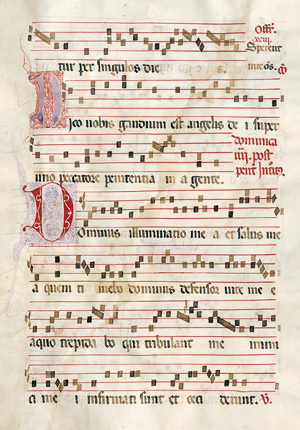 tur per singulos dies.
Dico vobis gaudium est angelis dei super
uno peccatore penitentiam agente.
dominica
iiii. post
Dominus illuminatio mea et salus me
a quem timebo dominus defensor vite me e
a quo trepidabo qui tribulant me inimi
ci mei infirmati sunt et ceciderunt. V.